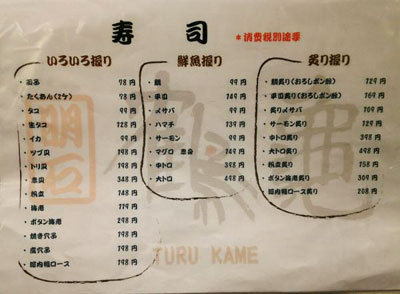 寿司
＊消費税別途要
いろいろ握り
玉子 98円
たくあん(2ケ) 98円
タコ 99円
生タコ 128円
イカ 99円
ツブ貝 198円
トリ貝 198円
赤貝 348円
帆立 148円
海老 119円
ボタン海老 298円
焼き穴子 198円
煮穴子 198円
ロース 198円
鮮魚握り
鯛 99円
平目 149円
〆サバ 99円
ハマチ 139円
サーモン 99円
マグロ 赤身 149円
中トロ 398円
大トロ 498円
炙り握り
鯛炙り(おろしポン酢) 129円
平目炙り(おろしポン酢) 169円
炙り〆サバ 109円
サーモン炙り 129円
中トロ炙り 398円
大トロ炙り 498円
帆立炙り 158円
ボタン海老炙り 309円
ロース炙り 208円
鶴亀
TURU KAME